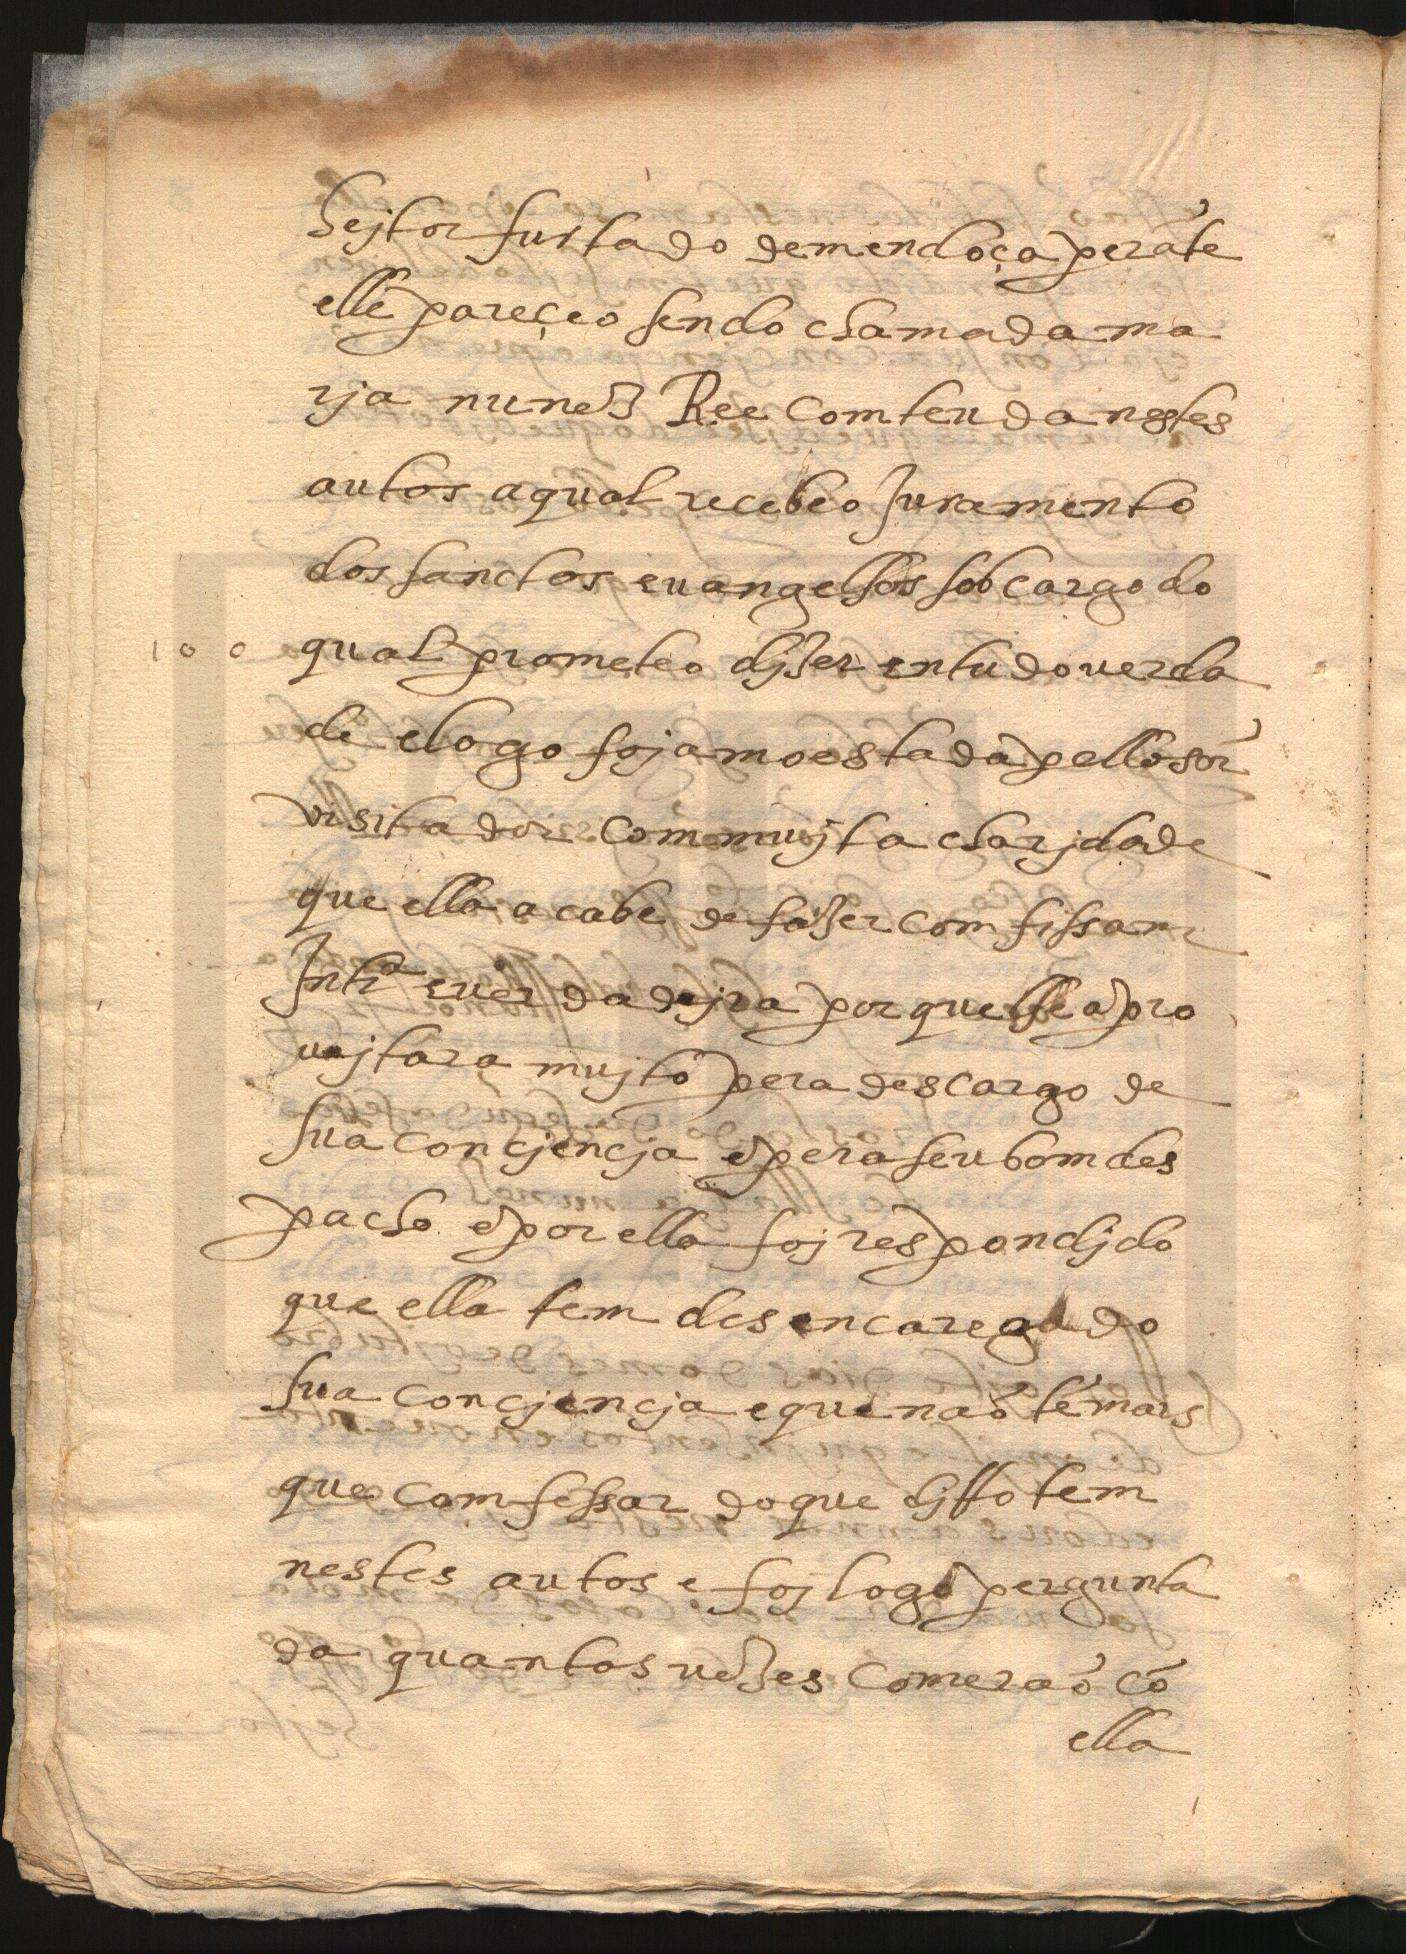 Hejtor furtado de mendoça perãte
elle pareçeo sendo chamada ma
rja nunez Ree comteuda nestes
autos a qual recebeo Juramento
dos sanctos euangelhos sob cargo do
qual prometeo djzer em tudo uerda
de e logo foj amoestada pello sõr
visitador com mujta charjdade
que ella acabe de fazer comfissam
Intrª e uerdadejra porque lhe apro
uejtara mujto pera descargo de
sua concjencja e pera seu bom des
pacho e por ella foj respondjdo
que ella tem desencaregado
sua concjencja e que não tẽ mais
que comfessar do que djtto tem
nestes autos e foj logo pergunta
da quantas uezes comerão cõ
ella